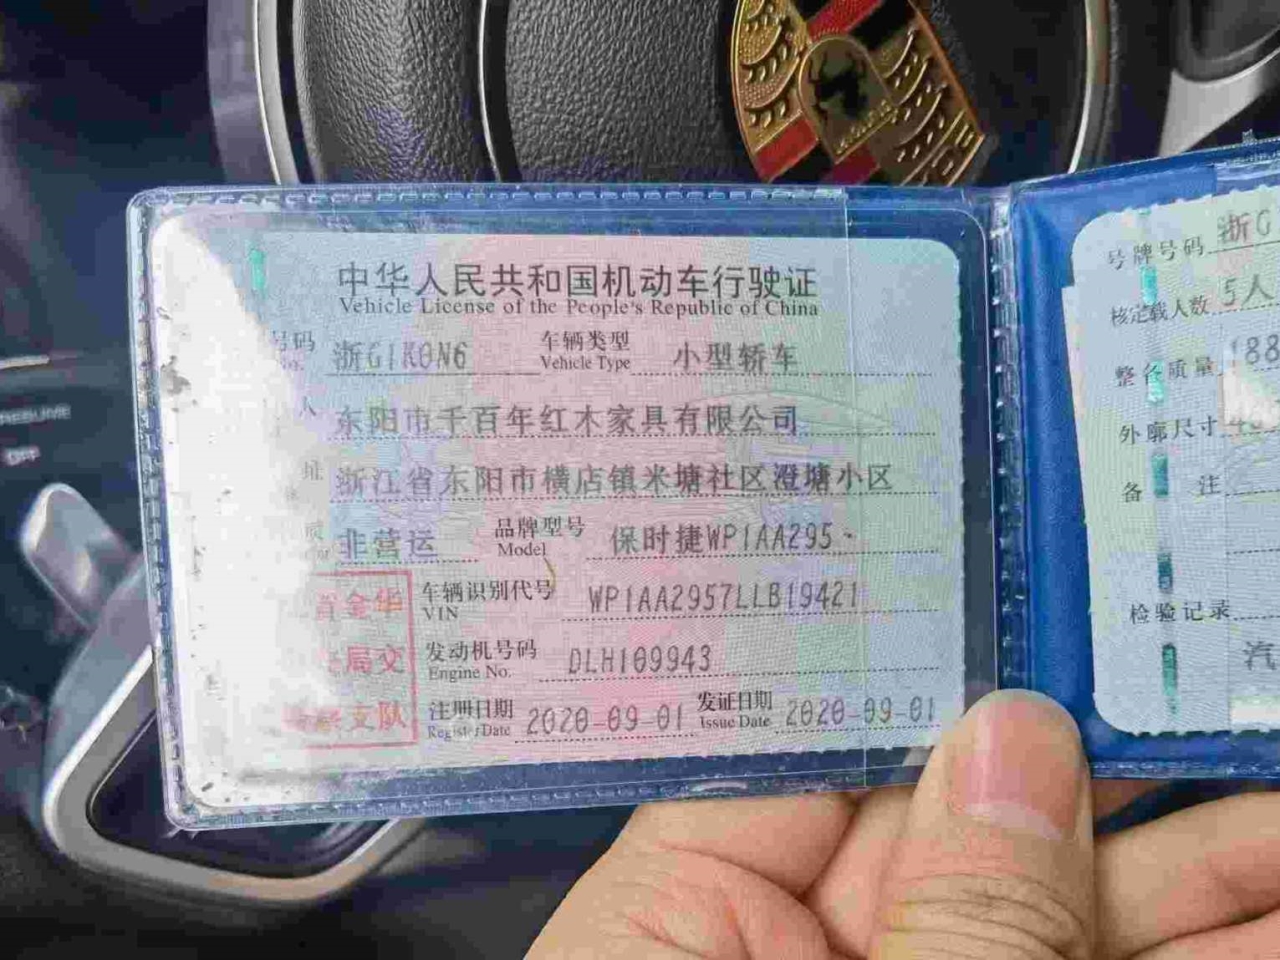 中华人民共和国机动车行驶证
Vehicle License of the People's Republic of China
号码 浙G1K0N6 车辆类型 小型轿车
No. Vehicle Type
人 东阳市千百年红木家具有限公司
址 浙江省东阳市横店镇米塘社区澄塘小区
质 非营运 品牌型号 保时捷WP1AA295
Model
车辆识别代号 WP1AA2957LLB19421
VIN
发动机号码 DLH109943
Engine No.
注册日期 2020-09-01 发证日期 2020-09-01
Register Date Issue Date
省金华
局交
支队
号牌号码 浙G
核定载人数 5人
整备质量 188
外廓尺寸
备 注
检验记录
汽
RESUME
OFF